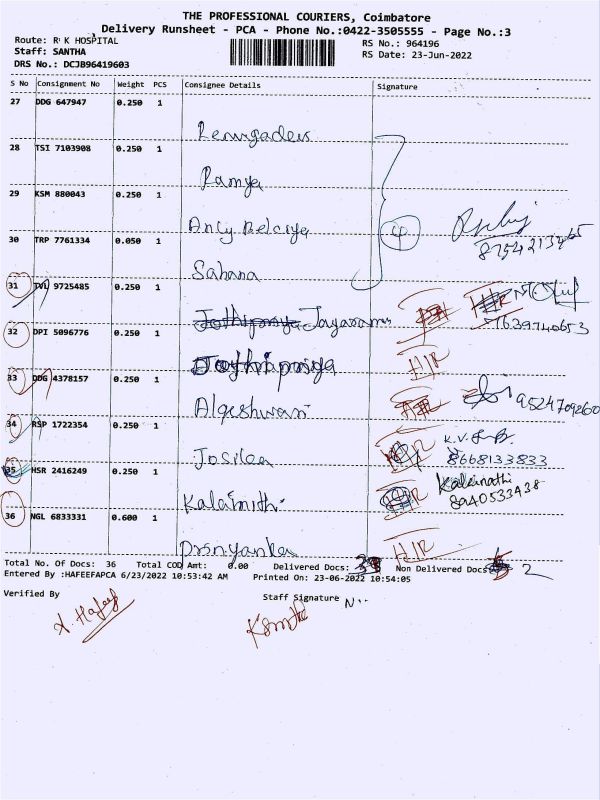 THE PROFESSIONAL COURIERS, Coimbatore
Delivery Runsheet - PCA - Phone No.:0422-3505555 - Page No.:3
Route: R K HOSPITAL
RS No.: 964196
Staff: SANTHA
RS Date: 23-Jun-2022
DRS No.: DCJB96419603
S No Consignment No Weight PCS Consignee Details Signature
27 DDG 647947 0.250 1
Renugadevi
28 TSI 7103908 0.250 1
Ramya
29 KSM 880043 0.250 1
Ancy Belciya
4
8754213465
30 TRP 7761334 0.050 1
Sahana
31 TVL 9725485 0.250 1
Jothipriya Jayaramu
7639740653
32 DPI 5096776 0.250 1
Joythipriya
H/R
33 DDG 4378157 0.250 1
Algeshwari
9524709260
34 RSP 1722354 0.250 1
Josilea
8668133833
35 HSR 2416249 0.250 1
Kalainathi
8940533438
36 NGL 6833331 0.600 1
H/R
Total No. Of Docs: 36 Total COD Amt: 0.00 Delivered Docs: Non Delivered Docs: 2
Entered By :HAFEEFAPCA 6/23/2022 10:53:42 AM Printed On: 23-06-2022 10:54:05
Verified By Staff Signature